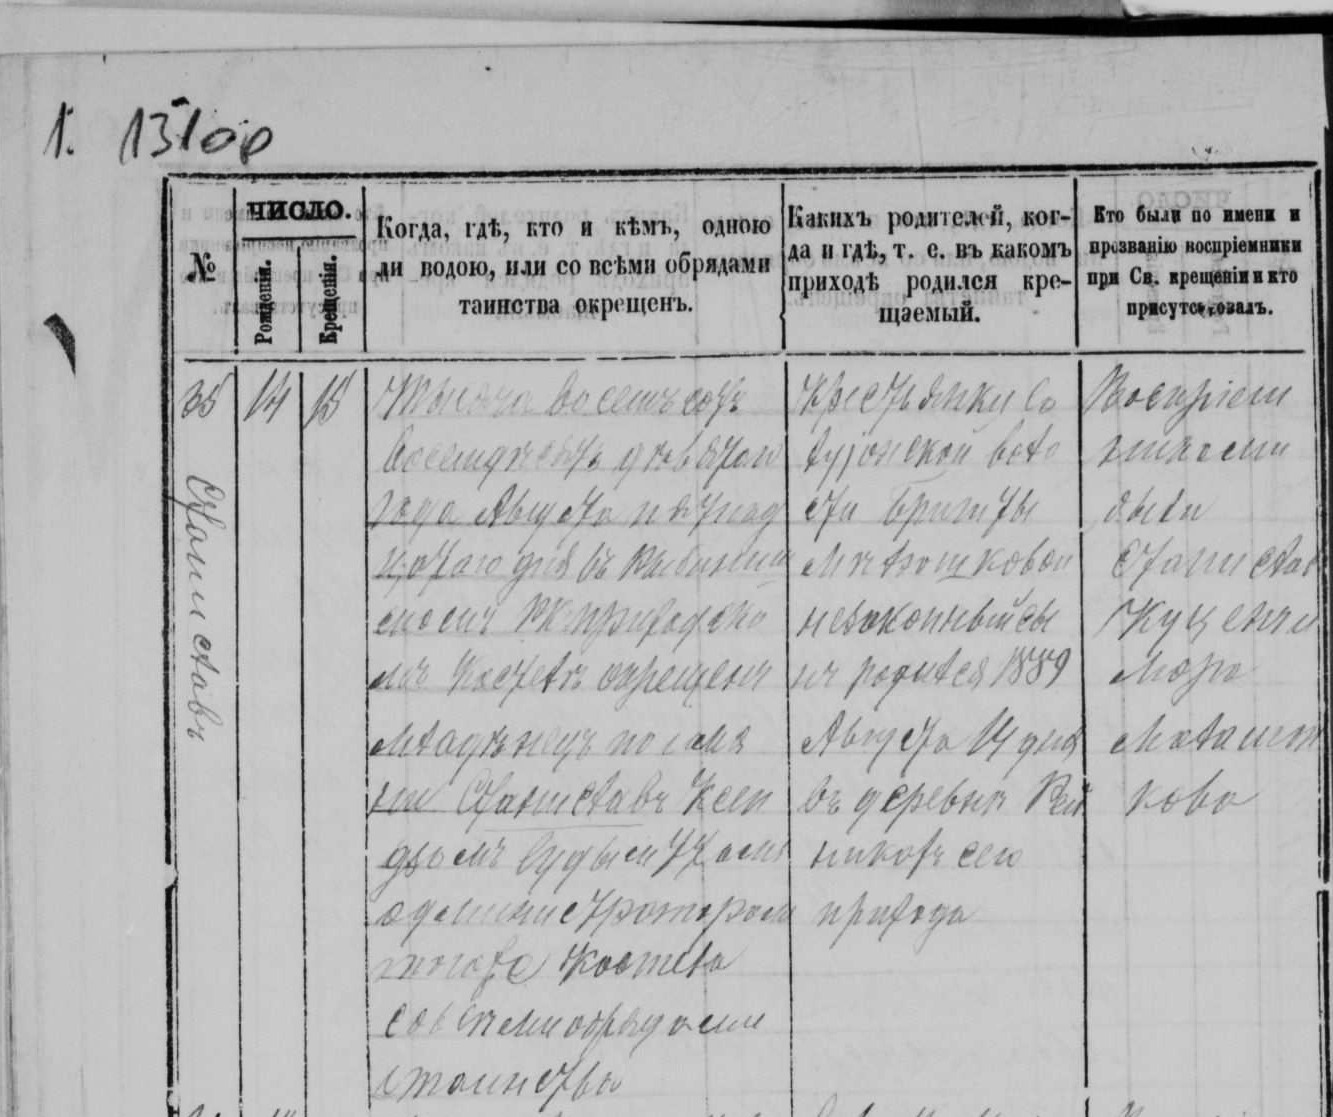 1. 131об
№
ЧИСЛО.
Рожденія.
Крещенія.
Когда, гдѣ, кто и кѣмъ, одною
ли водою, или со всѣми обрядами
таинства окрещенъ.
Какихъ родителей, ког-
да и гдѣ, т. е. въ какомъ
приходѣ родился кре-
щаемый.
Кто были по имени и
прозванію воспріемники
при Св. крещеніи и кто
присутствовалъ.
35
Станиславъ
14
15
Тысяча восемъ сотъ
восемдесятъ девятого
года Августа пятнад
цатого дня въ
скомъ РК приходско
мъ Костелѣ окрещенъ
младѣнецъ по имя
ни Станиславъ Ксен
дзомъ
администраторомъ
того Костела
совсѣми обрядами
таинства
Крестьянки Со
лујонской воло
сти Бригиты
Матюшковой
незаконный сы
нъ родился 1889
Августа 14 дня
въ деревнѣ
никовъ сего
прихода
Воспріем
никами
были
Станислав
Куцен и
Мара
ково